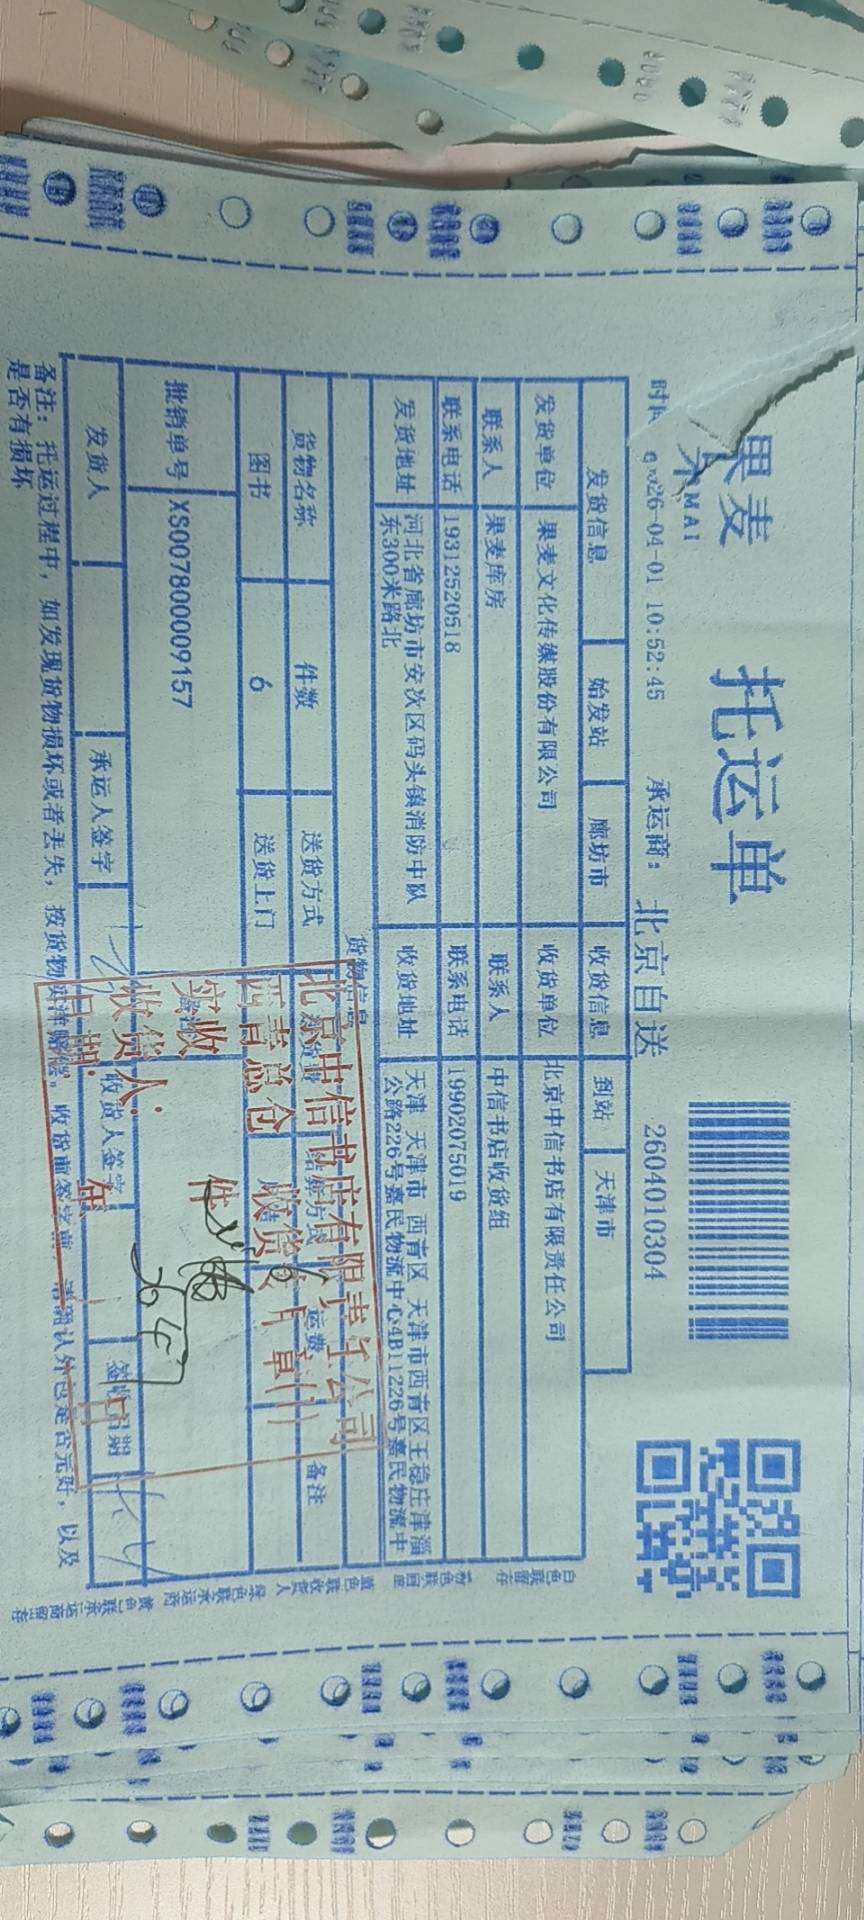 果麦
托运单
2604010304
10:52:45 承运商: 北京自送
发货信息 始发站 廊坊市 收货信息 到站 天津市
发货单位 果麦文化传媒股份有限公司 收货单位 北京中信书店有限责任公司
联系人 果麦库房 联系人 中信书店收货组
联系电话 19312520518 联系电话 19902075019
发货地址 河北省廊坊市安次区码头镇消防中队东300米路北 收货地址 天津 天津市 西青区 天津市西青区王稳庄津淄公路226号嘉民物流中心4B11226号嘉民物流中
货物信息
货物名称 件数 送货方式 结算方式 运费 备注
图书 6 送货上门
批销单号 XS00780009157
发货人 承运人签字 收货人签字 签收日期
备注: 托运过程中, 如发现货物损坏或者丢失, 按货物
收货前签字前 请确认外包是否完好, 以及
是否有损坏
北京中信书店有限责任公司
西青总仓 收货
实收 件
收货人:
日期: 年 月 日
白色联留存
粉色联回单
蓝色联收货人
绿色联承运商
黄色联承运商留存